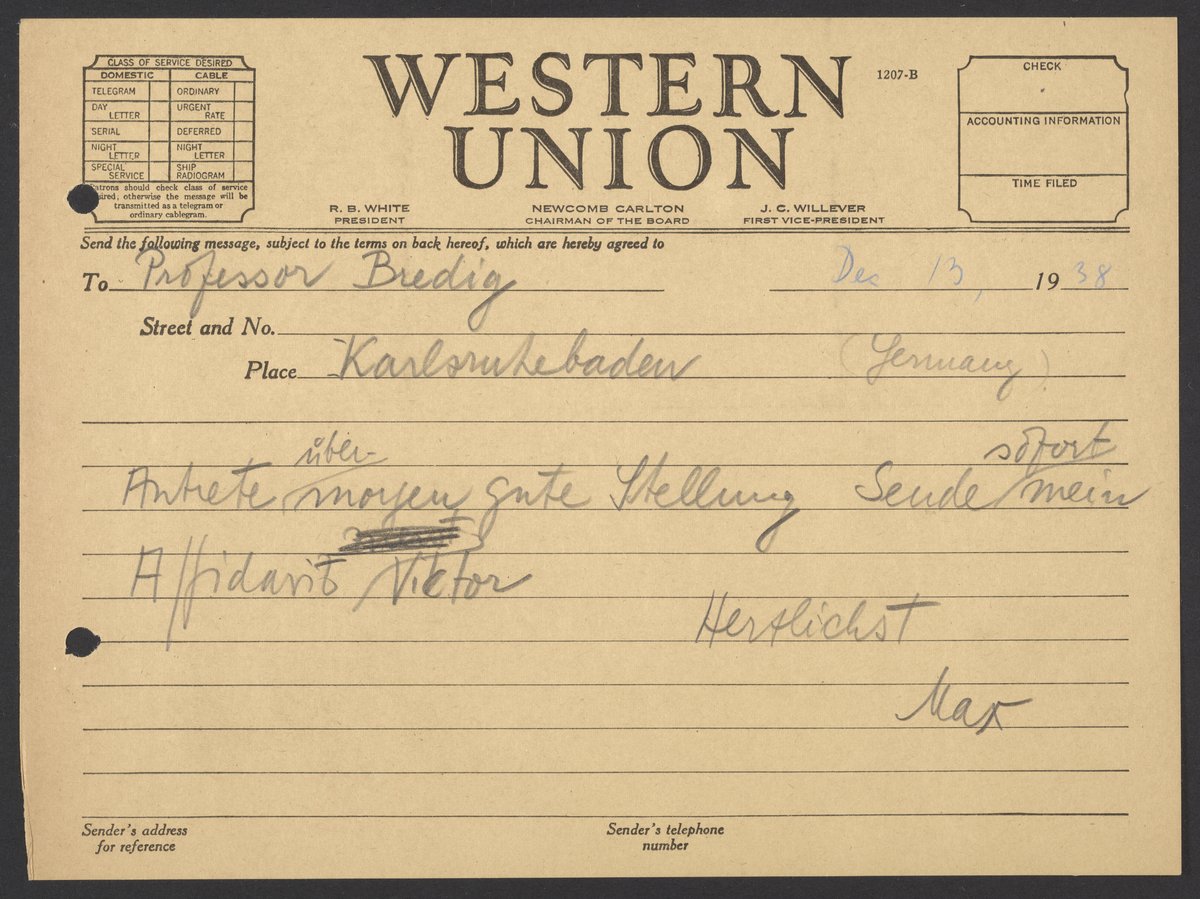 CLASS OF SERVICE DESIRED
DOMESTIC CABLE
TELEGRAM ORDINARY
DAY LETTER URGENT RATE
SERIAL DEFERRED
NIGHT LETTER NIGHT LETTER
SPECIAL SERVICE SHIP RADIOGRAM
Patrons should check class of service
desired; otherwise the message will be
transmitted as a telegram or
ordinary cablegram.
WESTERN
UNION
1207-B
CHECK
ACCOUNTING INFORMATION
TIME FILED
R. B. WHITE
PRESIDENT
NEWCOMB CARLTON
CHAIRMAN OF THE BOARD
J. C. WILLEVER
FIRST VICE-PRESIDENT
Send the following message, subject to the terms on back hereof, which are hereby agreed to
To Professor Bredig Dec 13, 1938
Street and No.
Place Karlsruhebaden (Germany)
über- sofort
Antrete morgen gute Stellung Sende mein
Affidavit Victor
Herzlichst
Max
Sender's address
for reference
Sender's telephone
number